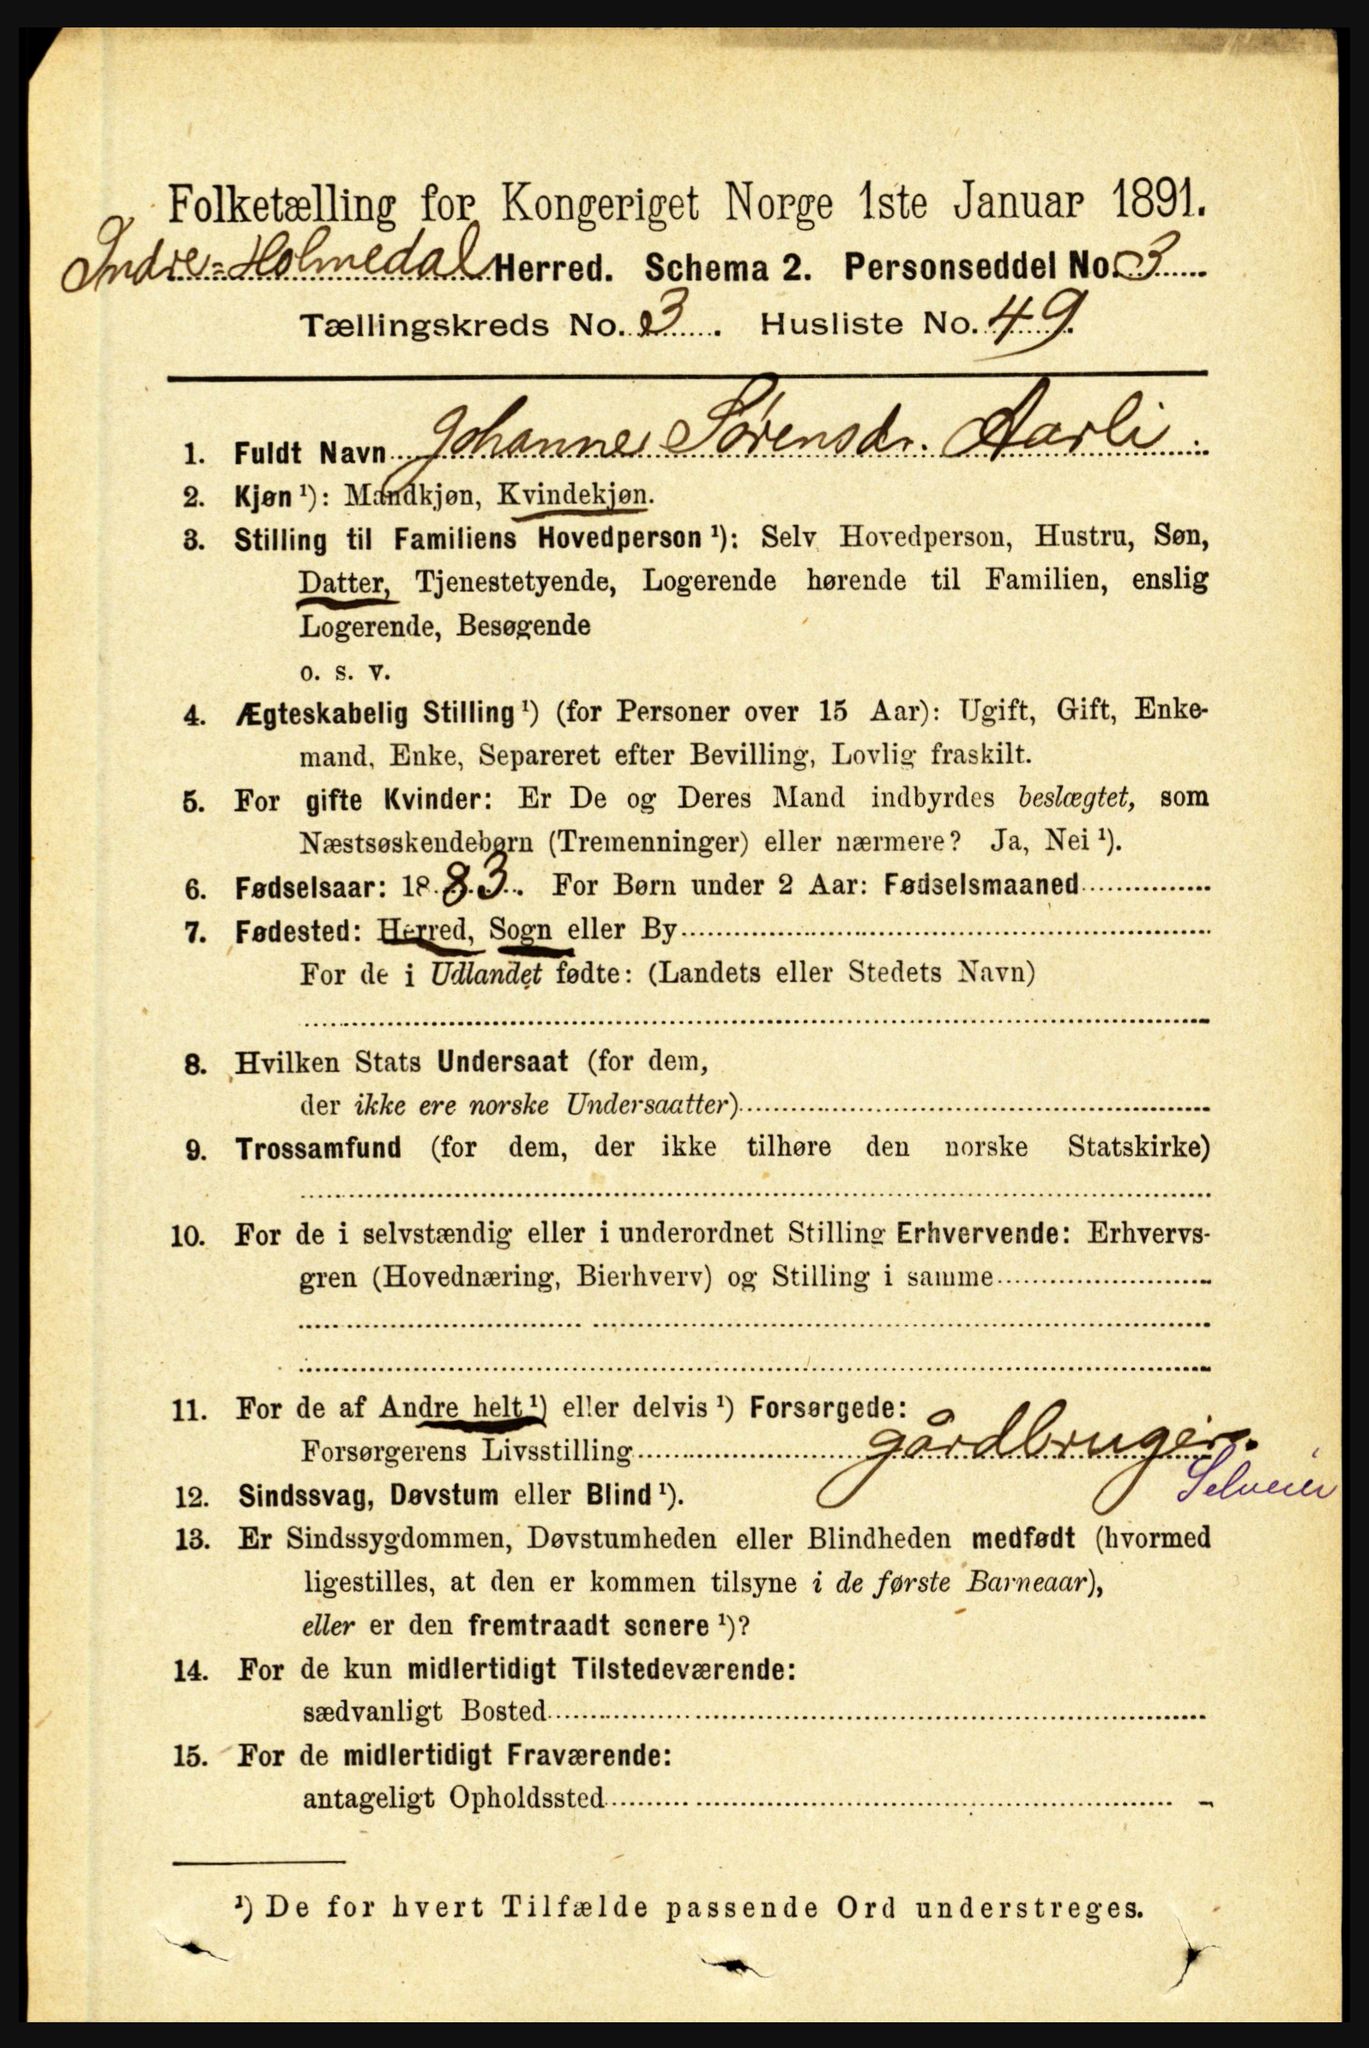 Folketælling for Kongeriget Norge 1ste Januar 1891.
Indre-Holmedal Herred. Schema 2. Personseddel No. 3
Tællingskreds No. 3. Husliste No. 49.
1. Fuldt Navn Johanne Sørensdr. Aarli.
2. Kjøn ¹): Mandkjøn, Kvindekjøn.
3. Stilling til Familiens Hovedperson ¹): Selv Hovedperson, Hustru, Søn,
Datter, Tjenestetyende, Logerende hørende til Familien, enslig
Logerende, Besøgende
o. s. v.
4. Ægteskabelig Stilling ¹) (for Personer over 15 Aar): Ugift, Gift, Enke-
mand, Enke, Separeret efter Bevilling, Lovlig fraskilt.
5. For gifte Kvinder: Er De og Deres Mand indbyrdes beslægtet, som
Næstsøskendebørn (Tremenninger) eller nærmere? Ja, Nei ¹).
6. Fødselsaar: 1883. For Børn under 2 Aar: Fødselsmaaned
7. Fødested: Herred, Sogn eller By
For de i Udlandet fødte: (Landets eller Stedets Navn)
8. Hvilken Stats Undersaat (for dem,
der ikke ere norske Undersaatter)
9. Trossamfund (for dem, der ikke tilhøre den norske Statskirke)
10. For de i selvstændig eller i underordnet Stilling Erhvervende: Erhvervs-
gren (Hovednæring, Bierhverv) og Stilling i samme
11. For de af Andre helt ¹) eller delvis ¹) Forsørgede:
Forsørgerens Livsstilling gårdbruger.
Selveier
12. Sindssvag, Døvstum eller Blind ¹).
13. Er Sindssygdommen, Døvstumheden eller Blindheden medfødt (hvormed
ligestilles, at den er kommen tilsyne i de første Barneaar),
eller er den fremtraadt senere ¹)?
14. For de kun midlertidigt Tilstedeværende:
sædvanligt Bosted
15. For de midlertidigt Fraværende:
antageligt Opholdssted
¹) De for hvert Tilfælde passende Ord understreges.